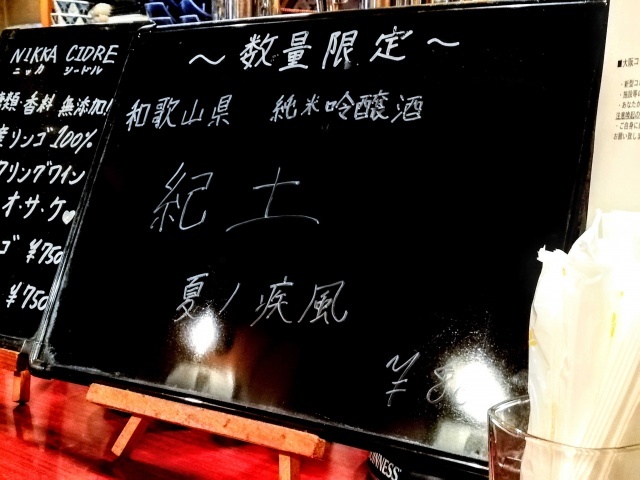 NIKKA CIDRE
ニッカ シードル
糖類・香料 無添加!
産リンゴ100%
クリングワイン
オ・サ・ケ♥
ゴ ¥750
¥750
～数量限定～
和歌山県 純米吟醸酒
紀土
夏ノ疾風
¥8
■大阪コ
・新型コ
・施設等
・あなた
注意喚起の
・ご自身に
お願い致し
UINNESS